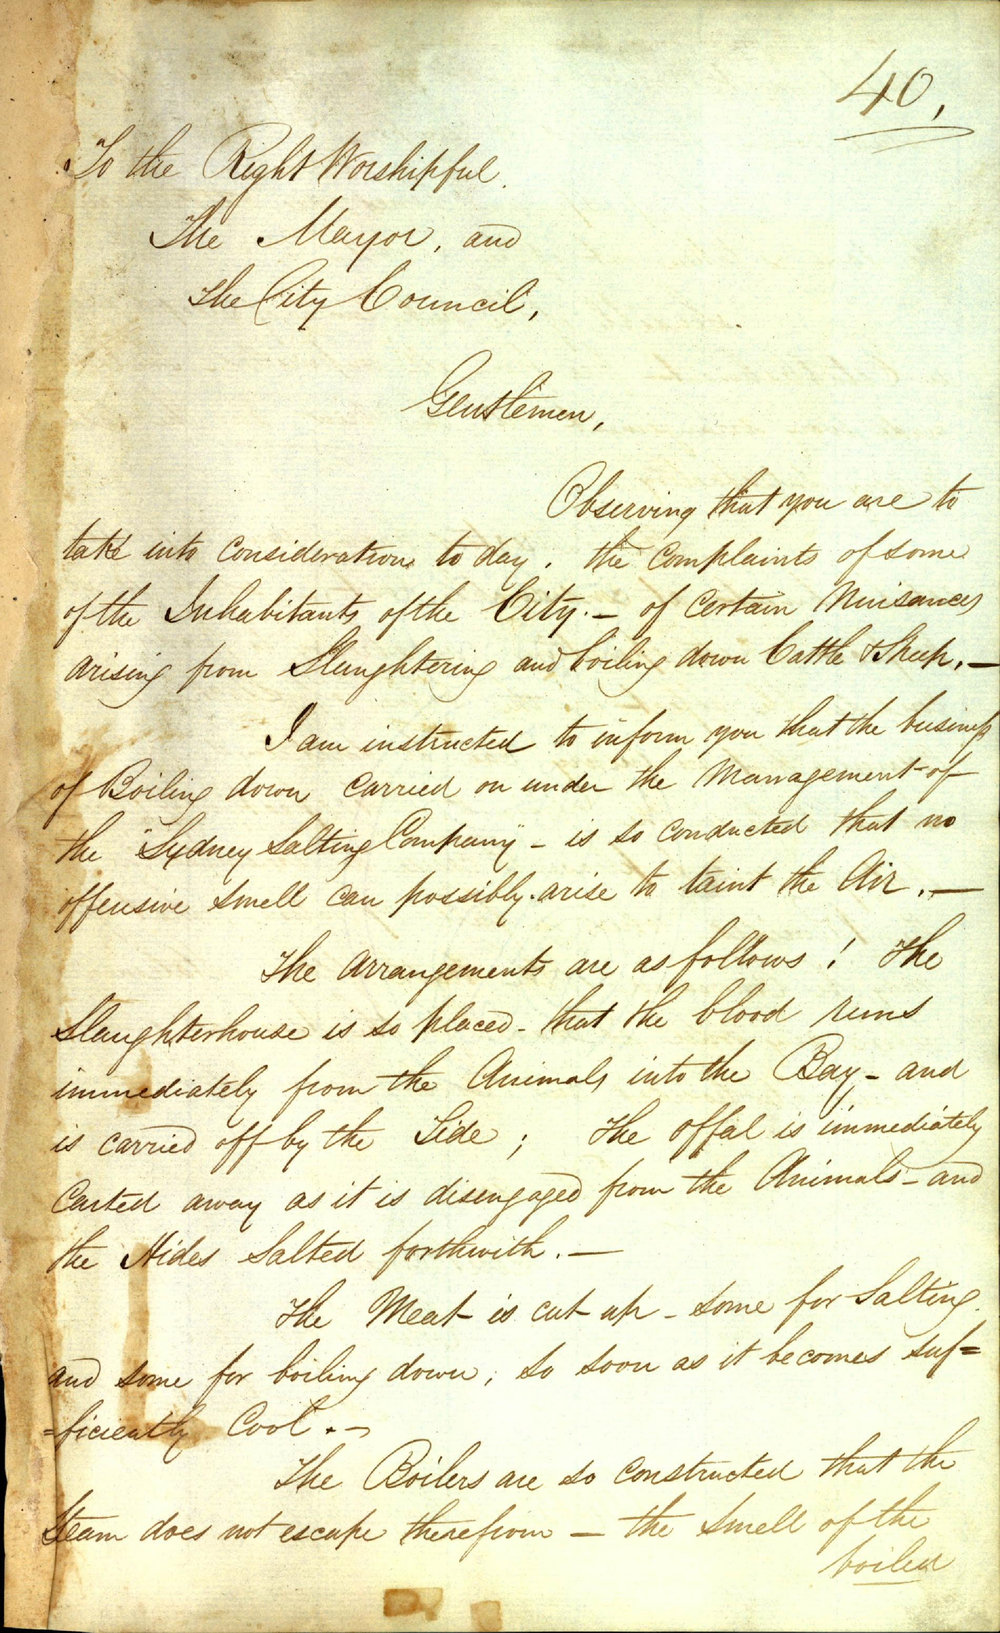 40,
To the Right Worshipful.
The Mayor, and
The City Council,
Gentlemen,
Observing that you are to
take into consideration to day. the complaints of some
of the Inhabitants of the City. — of certain Nuisances
arising from Slaughtering and boiling down Cattle & Sheep. —
I am instructed to inform you that the business
of Boiling down carried on under the Management of
the "Sydney Salting Company" — is so conducted that no
offensive smell can possibly arise to taint the Air. —
The arrangements are as follows! The
Slaughterhouse is so placed - that the blood runs
immediately from the Animals into the Bay - and
is carried off by the Tide; The offal is immediately
Carted away as it is disengaged from the Animals - and
the Hides Salted forthwith. —
The Meat is cut up - some for Salting.
and some for boiling down, so soon as it becomes suf=
=ficiently Cool. —
The Boilers are so constructed that the
Steam does not escape therefrom — the smell of the
boiled